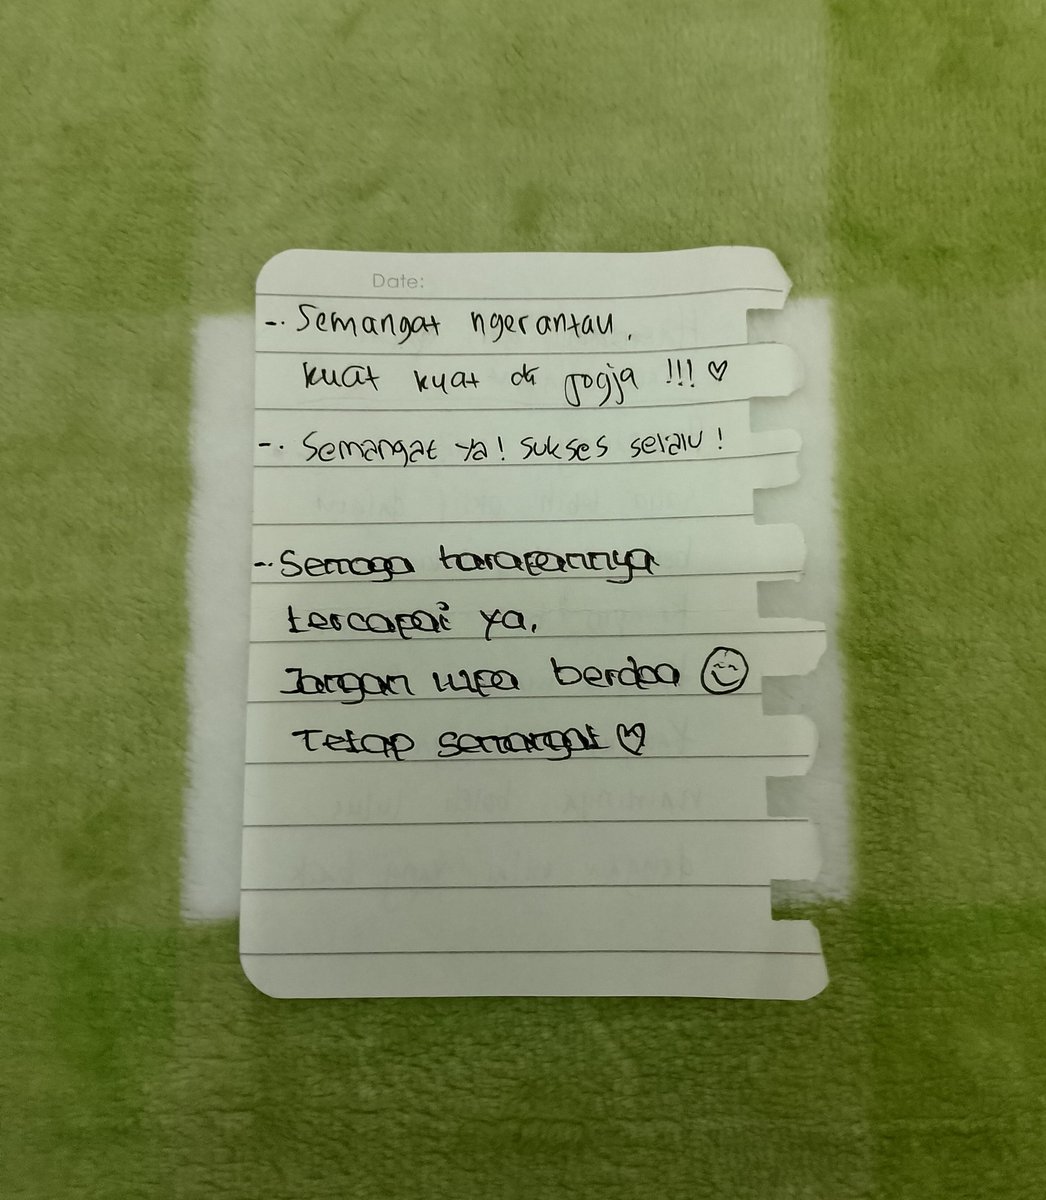 Date:
-. Semangat ngerantau,
kuat kuat di jogja !!! ♡
-. Semangat ya! sukses selalu!
-. Semoga harapannya
tercapai ya,
Jangan lupa berdoa 😊
Tetap semangat ♡